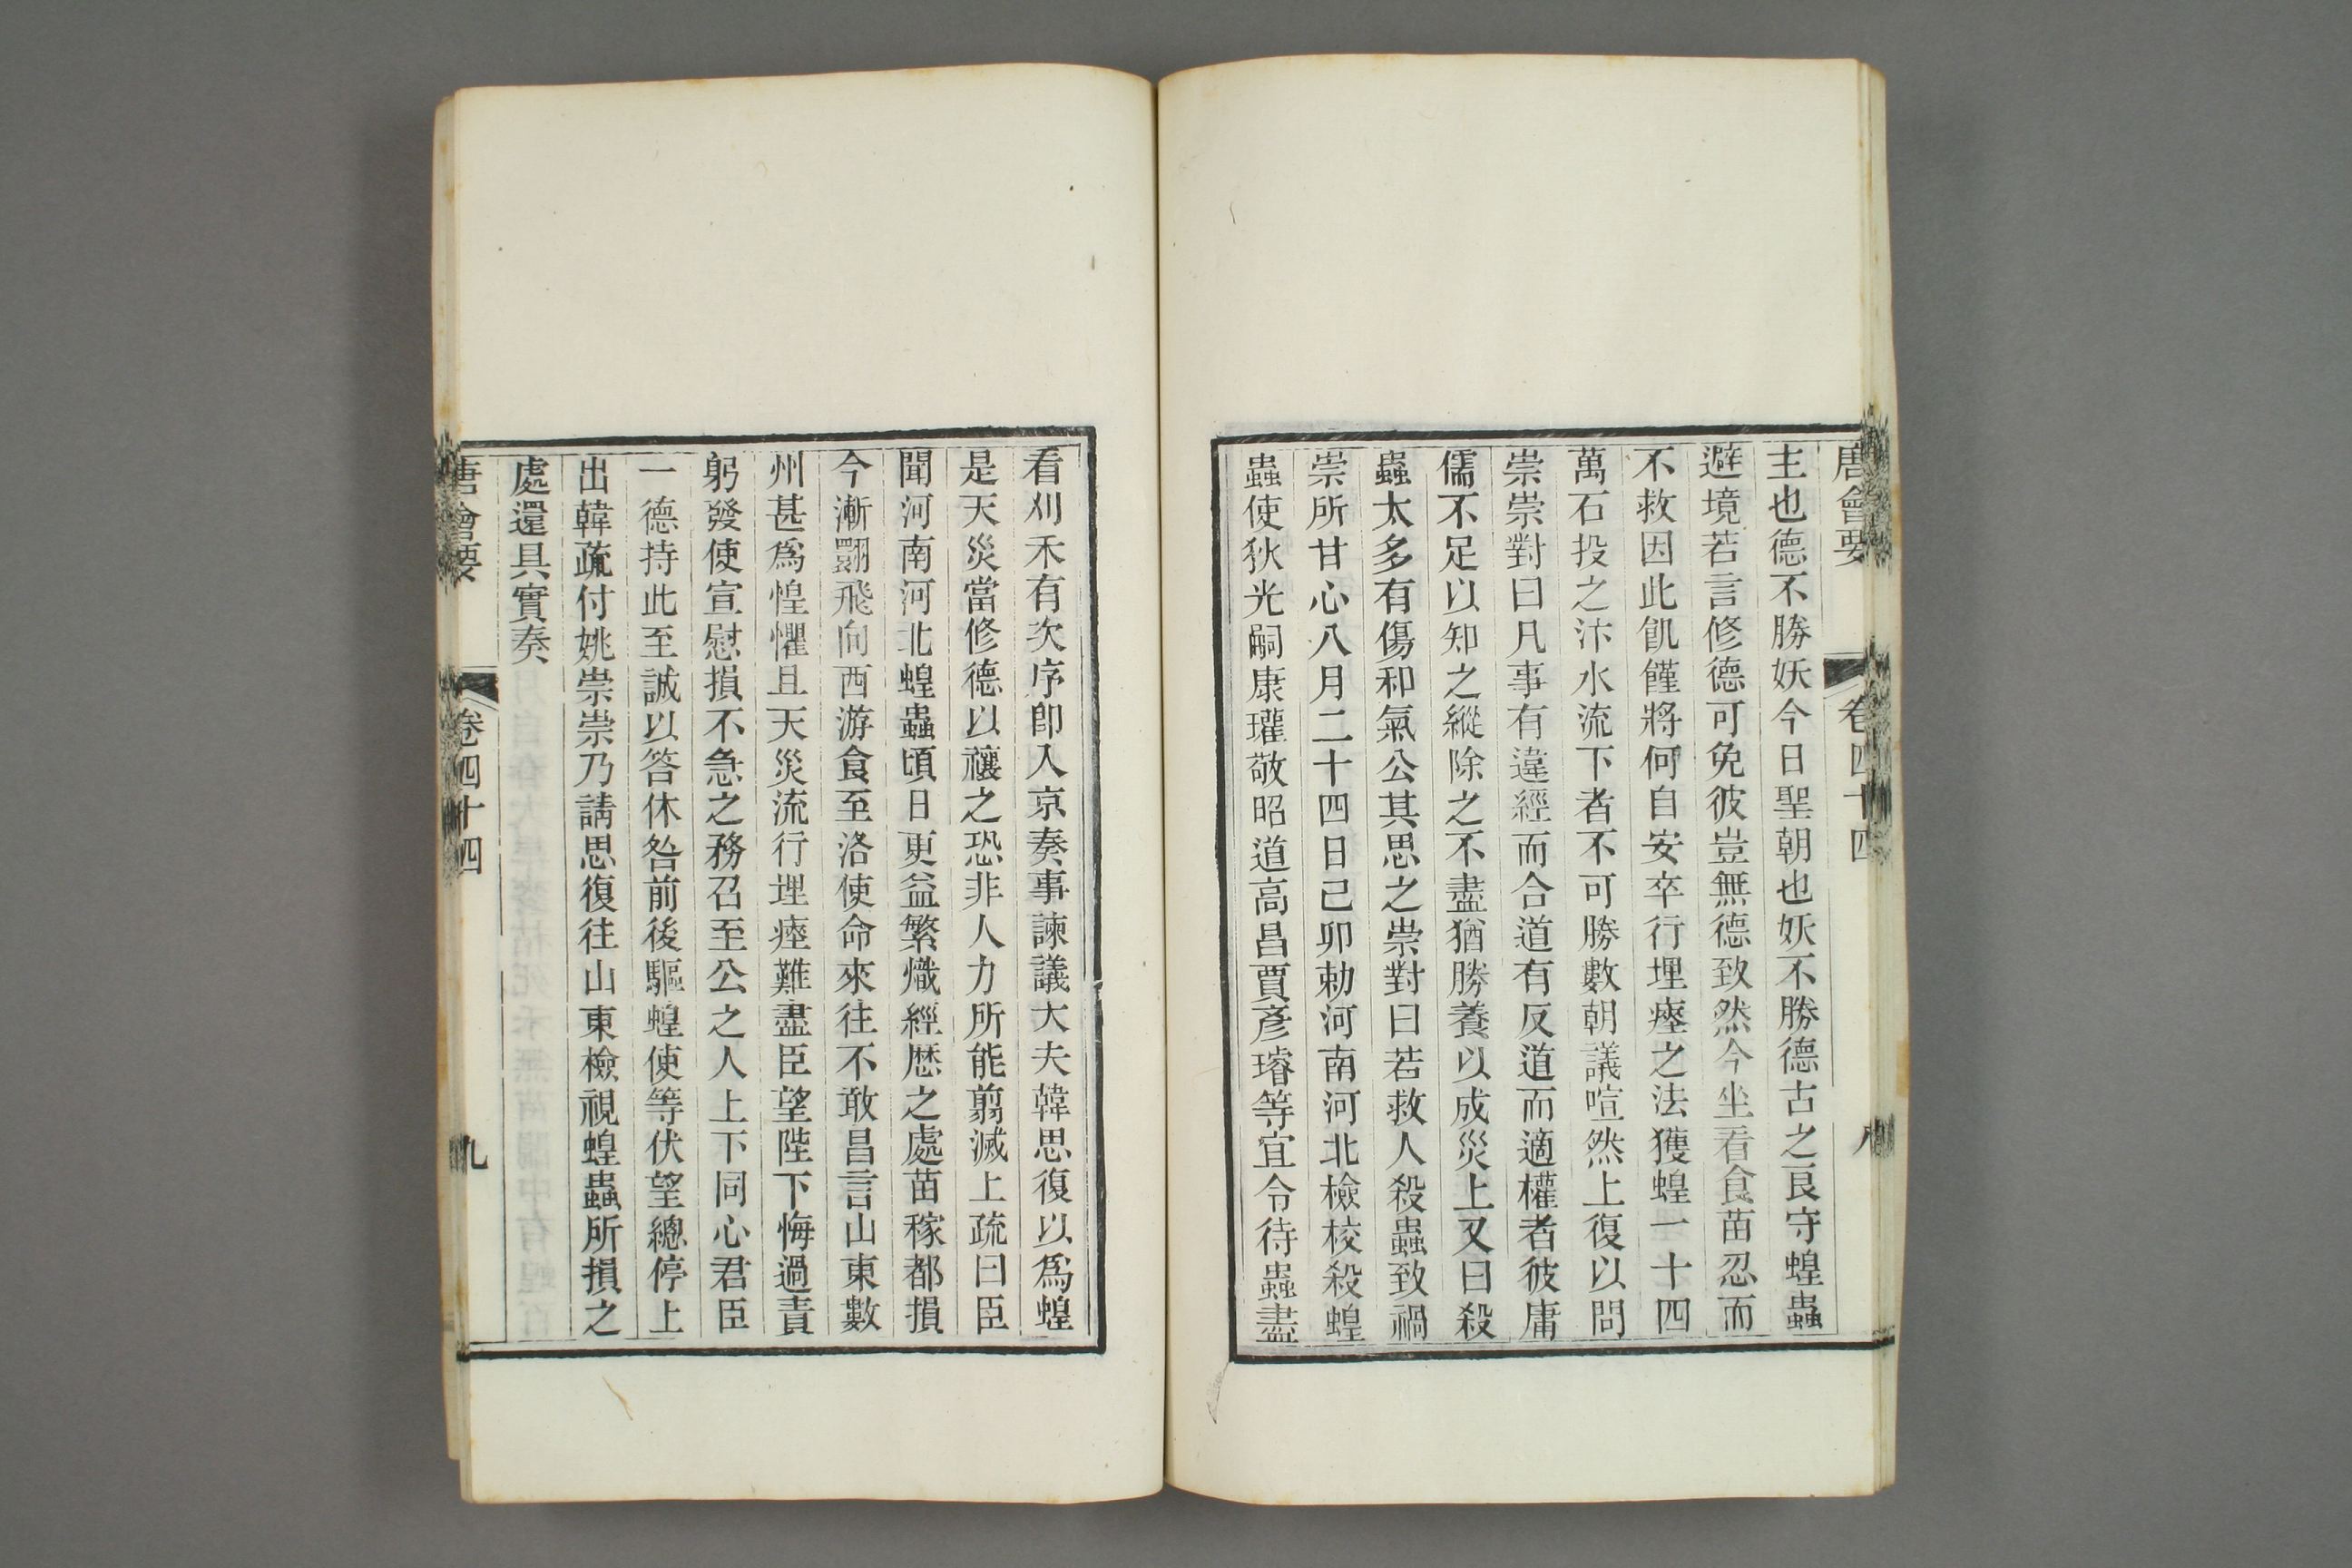 唐會要 卷四十四 八
主也德不勝妖今日聖朝也妖不勝德古之良守蝗蟲
避境若言修德可免彼豈無德致然今坐看食苗忍而
不救因此飢饉將何自安卒行埋瘞之法獲蝗一十四
萬石投之汴水流下者不可勝數朝議喧然上復以問
崇崇對曰凡事有違經而合道有反道而適權者彼庸
儒不足以知之縱除之不盡猶勝養以成災上又曰殺
蟲太多有傷和氣公其思之崇對曰若救人殺蟲致禍
崇所甘心八月二十四日己卯勅河南河北檢校殺蝗
蟲使狄光嗣康瓘敬昭道高昌賈彥璿等宜令待蟲盡
看刈禾有次序卽入京奏事諫議大夫韓思復以爲蝗
是天災當修德以禳之恐非人力所能翦滅上疏曰臣
聞河南河北蝗蟲頃日更益繁熾經歷之處苗稼都損
今漸翾飛向西游食至洛使命來往不敢昌言山東數
州甚爲惶懼且天災流行埋瘞難盡臣望陛下悔過責
躬發使宣慰損不急之務召至公之人上下同心君臣
一德持此至誠以答休咎前後驅蝗使等伏望總停上
出韓疏付姚崇崇乃請思復往山東檢視蝗蟲所損之
處還具實奏
唐會要 卷四十四 九